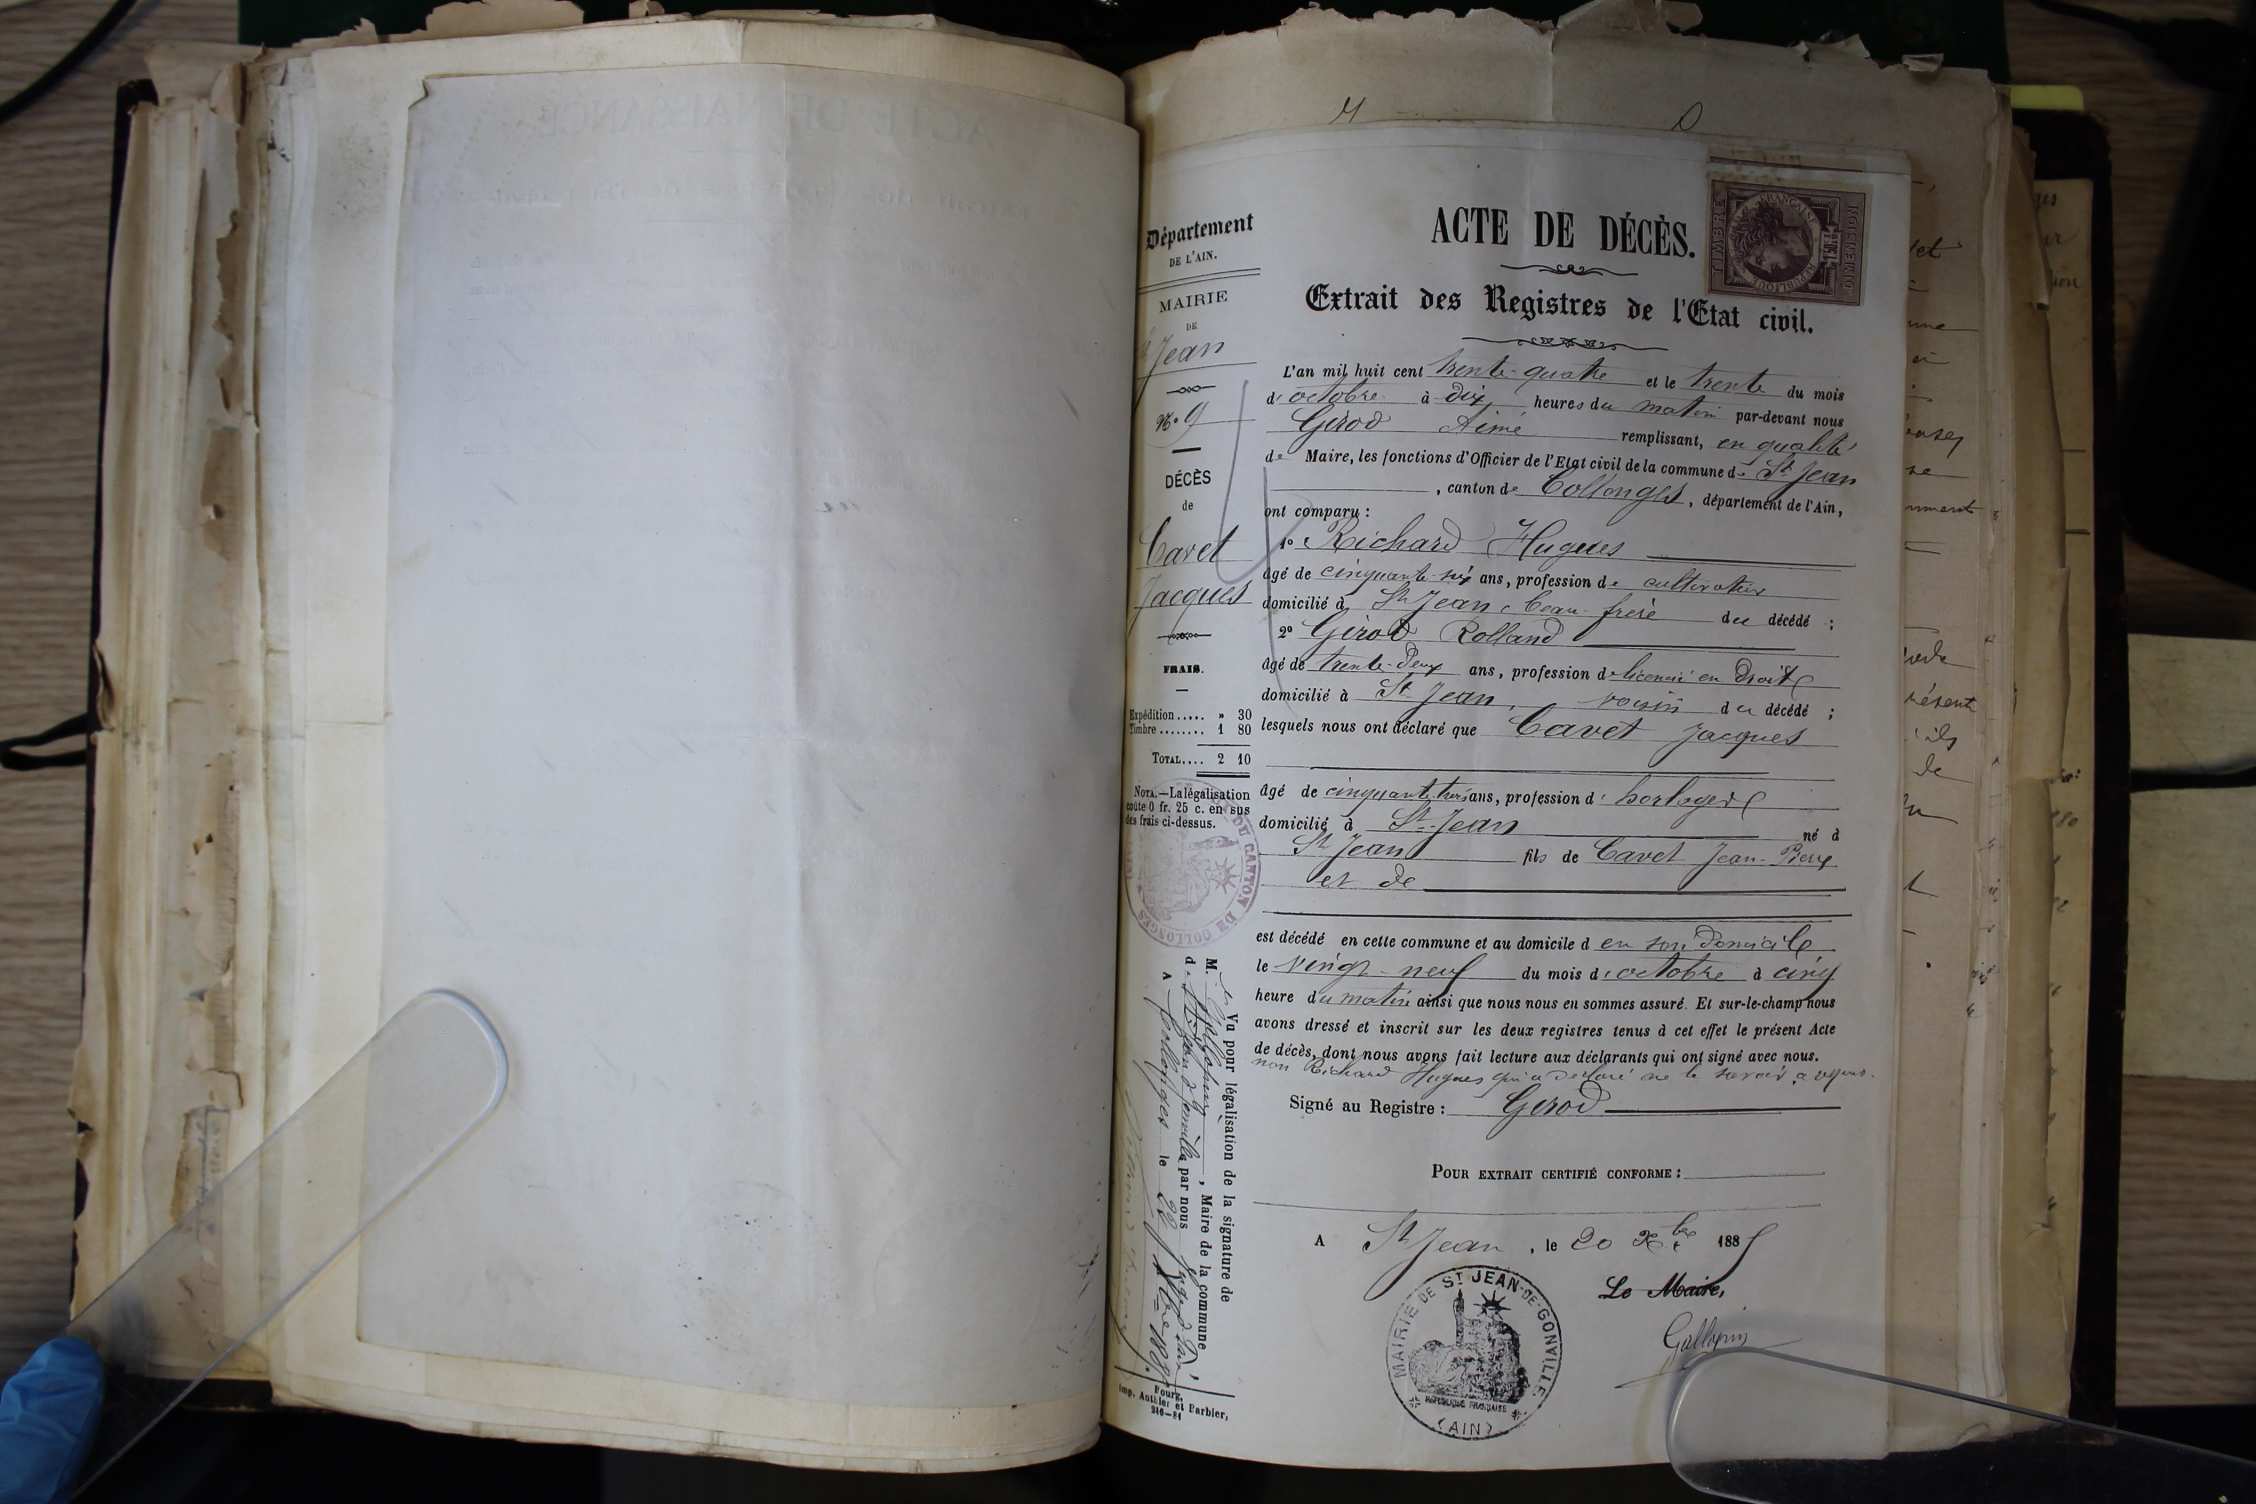 Département
DE L'AIN.
MAIRIE
DE
St Jean
No 9
DÉCÈS
de
Cavet
Jacques
FRAIS.
Expédition..... » 30
Timbre........ 1 80
TOTAL.... 2 10
NOTA.—La légalisation
coûte 0 fr. 25 c. en sus
des frais ci-dessus.
DU CANTON DE COLLONGES
Vu pour légalisation de la signature de
M. Gallopin, Maire de la commune
de St Jean de Gonville par nous
A Collonges le 22
Bourg,
Imp. Authier et Barbier,
ACTE DE DÉCÈS.
TIMBRE
RÉPUBLIQUE FRANÇAISE
DIMENSION
Extrait des Registres de l'Etat civil.
L'an mil huit cent trente-quatre et le trente du mois
d'octobre à dix heures du matin par-devant nous
Girod Aimé remplissant, en qualité
de Maire, les fonctions d'Officier de l'Etat civil de la commune de St Jean
, canton de Collonges, département de l'Ain,
ont comparu :
1o Richard Hugues
âgé de cinquante-six ans, profession de cultivateur
domicilié à St Jean, beau-frère du décédé ;
2o Girod Rolland
âgé de trente-deux ans, profession de licencié en droit
domicilié à St Jean, voisin du décédé ;
lesquels nous ont déclaré que Cavet Jacques
âgé de cinquante-trois ans, profession d' horloger
domicilié à St-Jean né à
St Jean fils de Cavet Jean-Pierre
et de
est décédé en cette commune et au domicile d en son domicile
le vingt-neuf du mois d'octobre à cinq
heure du matin ainsi que nous nous en sommes assuré. Et sur-le-champ nous
avons dressé et inscrit sur les deux registres tenus à cet effet le présent Acte
de décès, dont nous avons fait lecture aux déclarants qui ont signé avec nous.
non Richard Hugues qui a déclaré ne le savoir
Signé au Registre : Girod
POUR EXTRAIT CERTIFIÉ CONFORME :
A St Jean, le 20 Xbre 1885
Le Maire,
Gallopin
MAIRIE DE ST JEAN-DE-GONVILLE
RÉPUBLIQUE FRANÇAISE
(AIN)